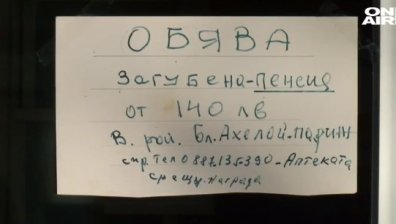 ON
AIR
ОБЯВА
Загубена-пенсия
от 140 лв
в. рай. Бл. Ахелой-Марин
спр. Тел 0887135390-Аптеката
срещу. Награда